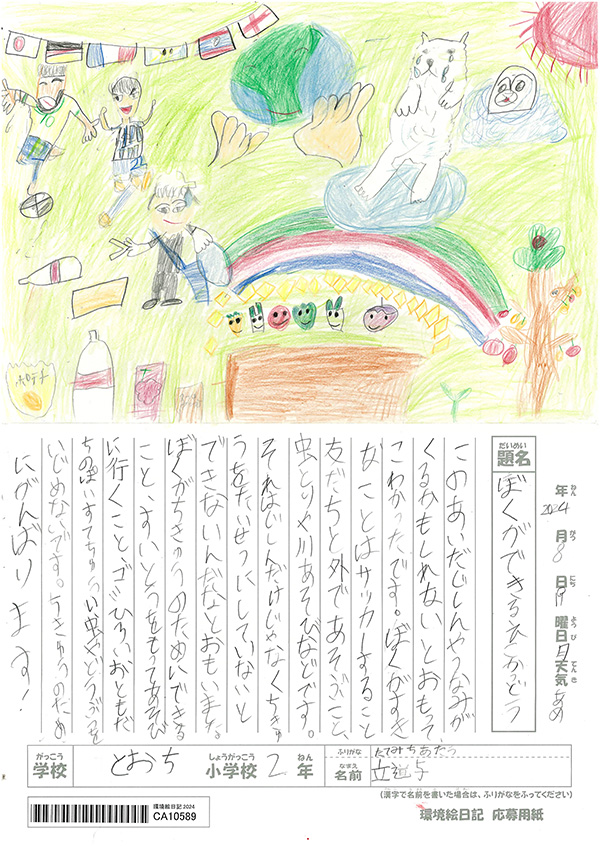 ポテチ
年 2024 月 8 日 19 曜日 月 天気 あめ
ねん がつ にち ようび てんき
だいめい
題名 ぼくができる
このあいだじしんやつなみが
くるかもしれないとおもって、
こわかったです。ぼくがすき
なことはサッカーすること
友だちと外であそぶこと、
虫とりや川あそびなどです。
それはじしんだけじゃなくちきゅ
うをたいせつにしていないと
できないんだなとおもいました。
ぼくがちきゅうのためにできる
こと、すいとうをもってあそび
に行くこと、ゴミひろいおともだ
ちのぽいすてちゅうい虫やどうぶつを
いじめないです。ちきゅうのため
にがんばります！
がっこう しょうがっこう ねん
学校 とおち 小学校 2 年
ふりがな たてみちあたう
なまえ
名前 立道与
(漢字で名前を書いた場合は、ふりがなをふってください)
環境絵日記2024
CA10589
環境絵日記 応募用紙